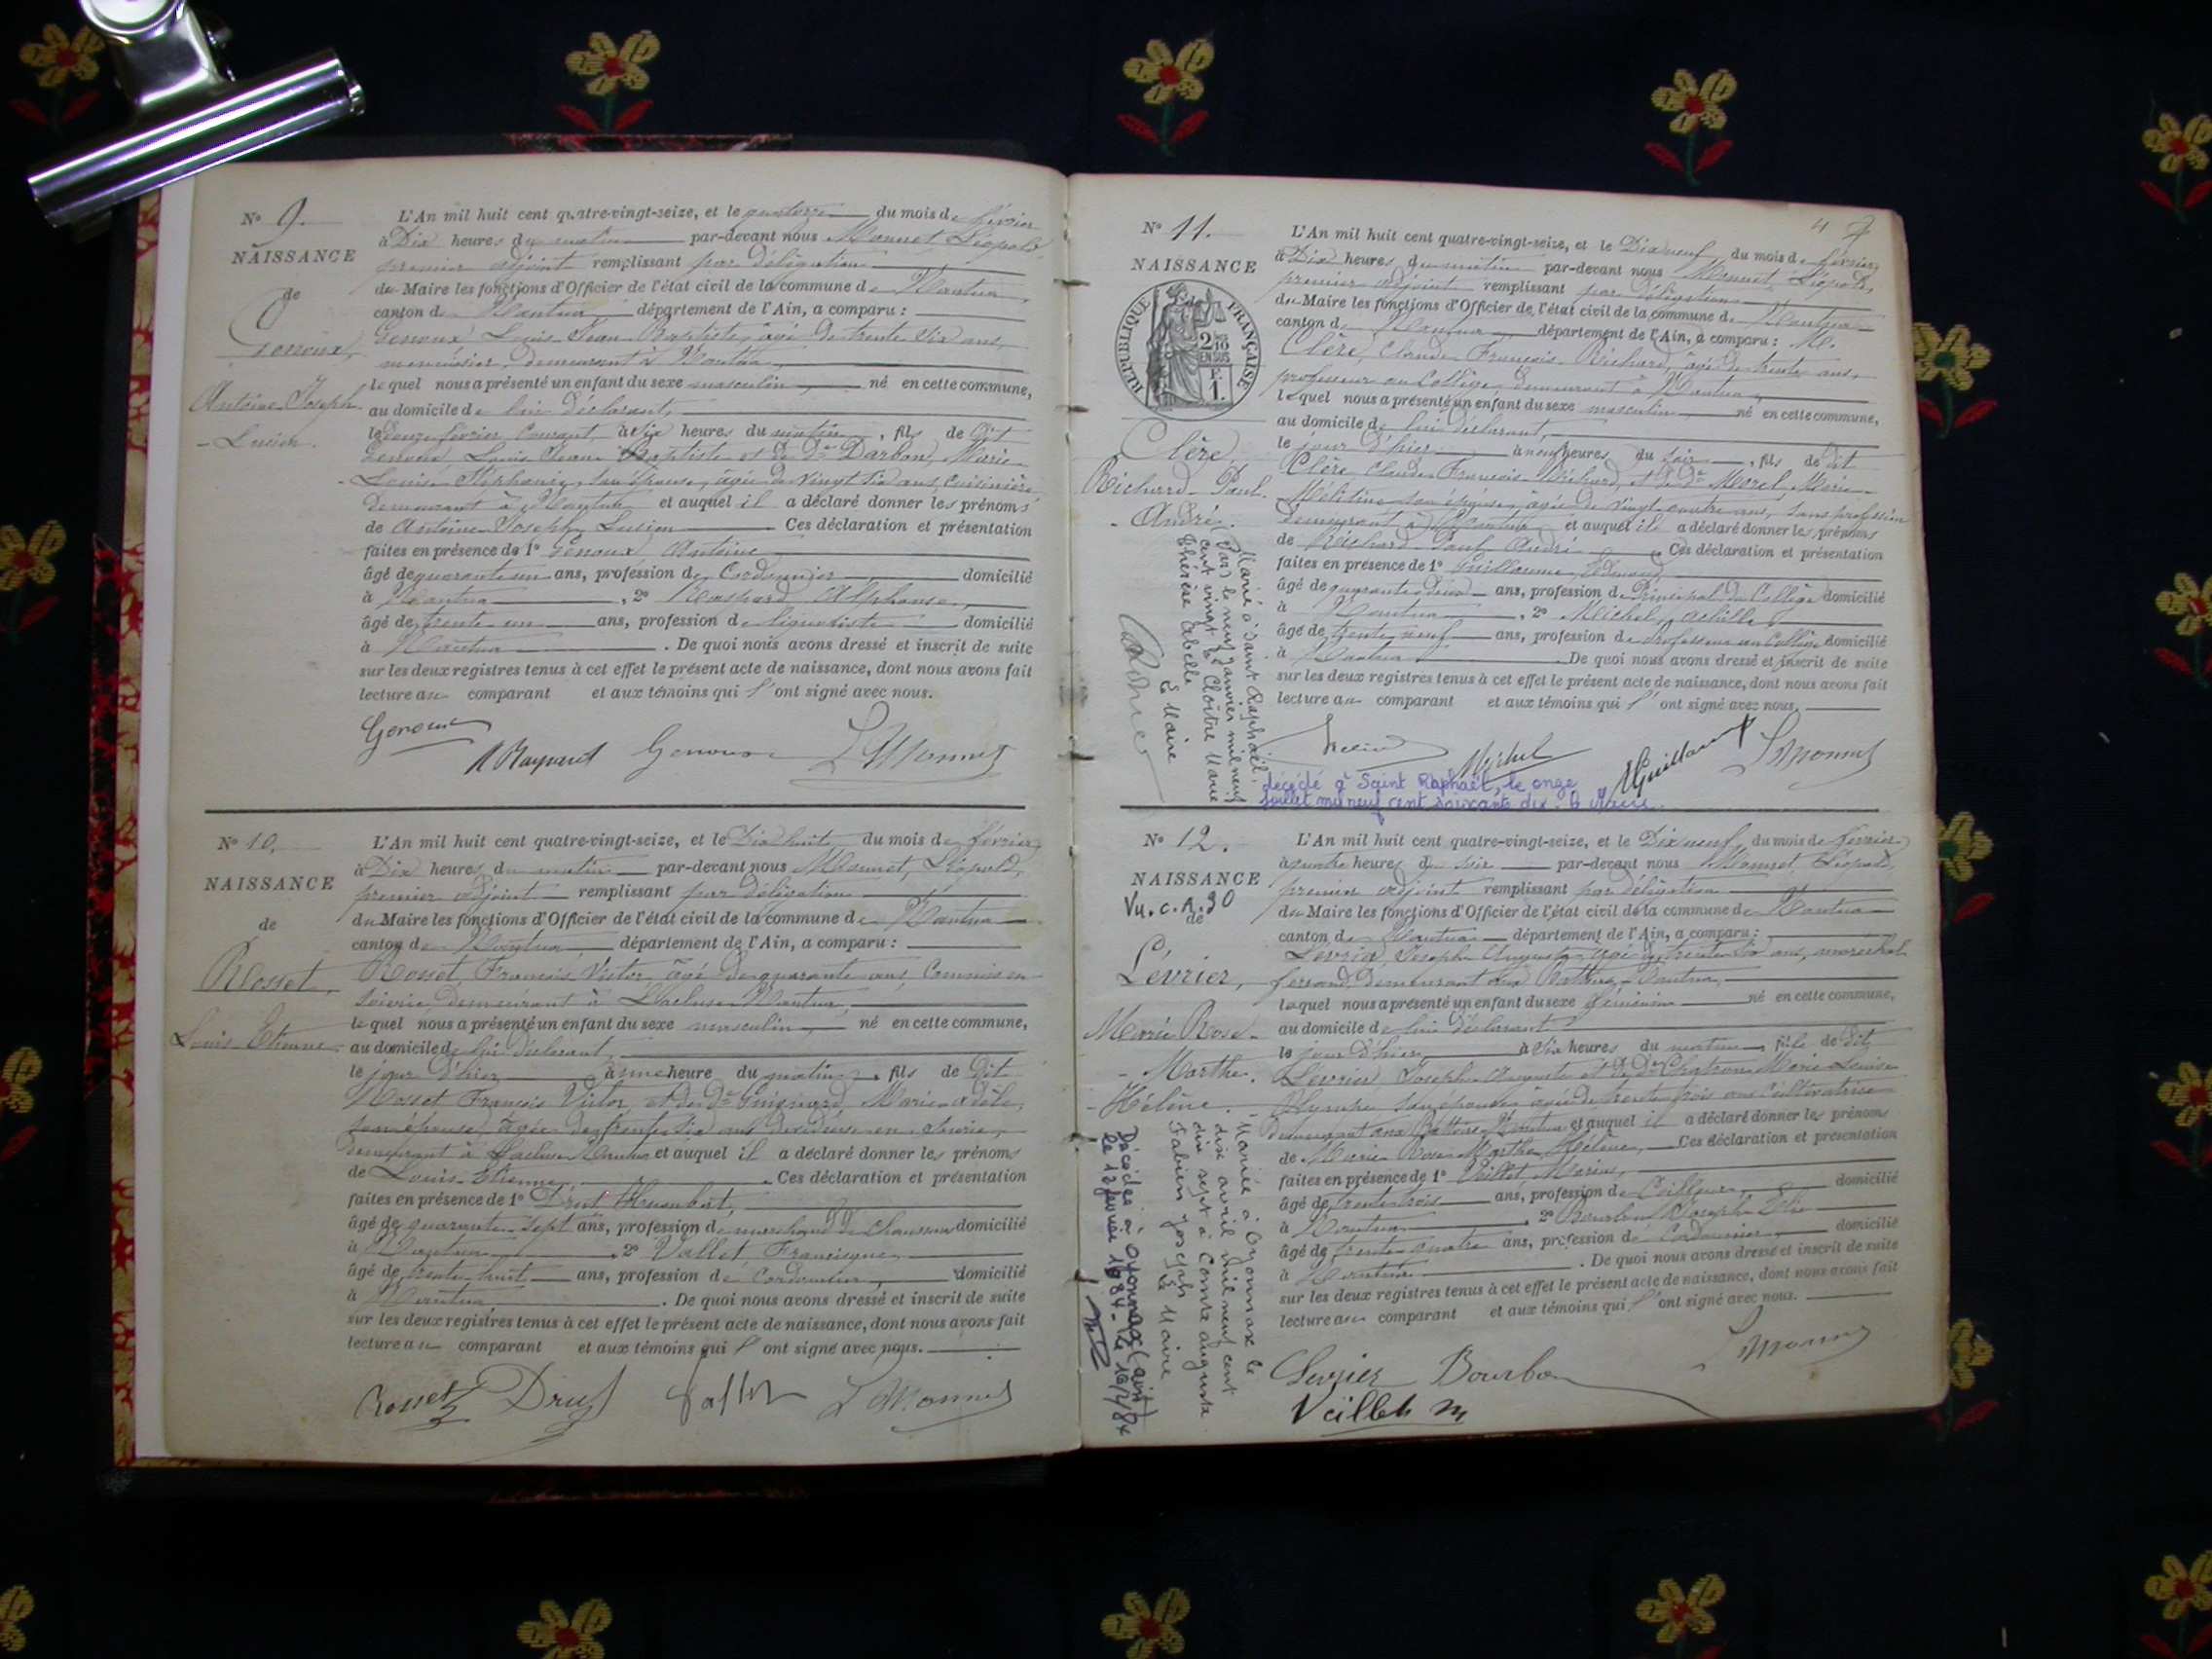 N° 9.
NAISSANCE
de
Genoux,
Antoine Joseph
- Lucien.
L'An mil huit cent quatre-vingt-seize, et le quatorze du mois de février
à Dix heures du matin par-devant nous Monnet Léopold,
premier adjoint remplissant par délégation
du Maire les fonctions d'Officier de l'état civil de la commune de Nantua,
canton de Nantua, département de l'Ain, a comparu :
Genoux Louis Jean Baptiste, âgé de trente six ans,
menuisier, demeurant à Nantua,
lequel nous a présenté un enfant du sexe masculin, né en cette commune,
au domicile de lui déclarant,
le douze février courant, à six heures du matin, fils de dit
Genoux Louis Jean Baptiste et de De Darbon, Marie
Louise Stéphanie, son épouse, âgée de vingt six ans, cuisinière
demeurant à Nantua, et auquel il a déclaré donner les prénoms
de Antoine Joseph Lucien Ces déclaration et présentation
faites en présence de 1° Genoux Antoine
âgé de quarante un ans, profession de Cordonnier domicilié
à Nantua, 2° Alphonse,
âgé de trente un ans, profession de domicilié
à Nantua. De quoi nous avons dressé et inscrit de suite
sur les deux registres tenus à cet effet le présent acte de naissance, dont nous avons fait
lecture au comparant et aux témoins qui l'ont signé avec nous.
Genoux Genoux L Monnet
N° 10.
NAISSANCE
de
Rosset,
Louis Etienne
L'An mil huit cent quatre-vingt-seize, et le Dix huit du mois de février
à Dix heures du matin par-devant nous Monnet, Léopold,
premier adjoint remplissant par délégation
du Maire les fonctions d'Officier de l'état civil de la commune de Nantua
canton de Nantua, département de l'Ain, a comparu :
Rosset, François Victor, âgé de quarante ans, Commis en
soierie, demeurant à Nantua,
lequel nous a présenté un enfant du sexe masculin, né en cette commune,
au domicile de lui déclarant,
le jour d'hier à une heure du matin, fils de dit
Rosset François Victor et de De Guignard, Marie Adèle,
son épouse, âgée de trente six ans, en soierie,
demeurant à Nantua et auquel il a déclaré donner les prénoms
de Louis-Etienne, Ces déclaration et présentation
faites en présence de 1° Humbert,
âgé de quarante sept ans, profession de marchand de chaussures domicilié
à Nantua, 2° Vallet Francisque,
âgé de trente huit ans, profession de Cordonnier, domicilié
à Nantua. De quoi nous avons dressé et inscrit de suite
sur les deux registres tenus à cet effet le présent acte de naissance, dont nous avons fait
lecture au comparant et aux témoins qui l'ont signé avec nous.
Rosset L Monnet
4
N° 11.
NAISSANCE
RÉPUBLIQUE FRANÇAISE
2/10 EN SUS
F. 1.
Clère,
Richard Paul
- André.
Marié à Saint Raphaël,
Var, le neuf janvier mil neuf
cent vingt à Cloître Marie
Thérèse Abelle
Le Maire
L'An mil huit cent quatre-vingt-seize, et le Dix neuf du mois de février
à Dix heures du matin par-devant nous Monnet, Léopold,
premier adjoint remplissant par délégation
du Maire les fonctions d'Officier de l'état civil de la commune de Nantua
canton de Nantua département de l'Ain, a comparu : M.
Clère, Claude François Richard, âgé de trente ans,
professeur au Collège, demeurant à Nantua,
lequel nous a présenté un enfant du sexe masculin né en cette commune,
au domicile de lui déclarant,
le jour d'hier à neuf heures du soir, fils de dit
Clère Claude François Richard, et de De Morel Marie
son épouse, âgée de vingt quatre ans, sans profession
demeurant à Nantua et auquel il a déclaré donner les prénoms
de Richard Paul André Ces déclaration et présentation
faites en présence de 1° Guillaume, Edmond
âgé de quarante deux ans, profession de Principal du Collège domicilié
à Nantua, 2° Michel, Achille,
âgé de trente neuf ans, profession de Professeur au Collège domicilié
à Nantua. De quoi nous avons dressé et inscrit de suite
sur les deux registres tenus à cet effet le présent acte de naissance, dont nous avons fait
lecture au comparant et aux témoins qui l'ont signé avec nous.
Michel Guillaume L Monnet
décédé à Saint Raphaël, le onze
juillet mil neuf cent soixante dix. Le Maire.
N° 12.
NAISSANCE
Vu. c. A. 30
de
Lévrier,
Marie Rose
- Marthe
- Hélène.
Mariée à Oyonnax le
dix avril mil neuf cent
dix sept à Comte Auguste
Fabien Joseph
Le Maire
Décédée à Oyonnax (Ain)
le 13 février 1984 - le 16/2/84
L'An mil huit cent quatre-vingt-seize, et le Dix neuf du mois de février
à quatre heures du soir par-devant nous Monnet, Léopold,
premier adjoint remplissant par délégation
du Maire les fonctions d'Officier de l'état civil de la commune de Nantua
canton de Nantua département de l'Ain, a comparu :
Lévrier, Joseph Auguste âgé de trente six ans, maréchal
ferrand, demeurant aux Battoirs Nantua,
lequel nous a présenté un enfant du sexe féminin né en cette commune,
au domicile de lui déclarant
le jour d'hier à six heures du matin, fille de dit
Lévrier Joseph Auguste et de De Chatron Marie Louise
Olympe son épouse âgée de trente trois ans Cultivatrice
demeurant aux Battoirs Nantua et auquel il a déclaré donner les prénoms
de Marie Rose Marthe Hélène, Ces déclaration et présentation
faites en présence de 1° Veillet, Marius,
âgé de trente trois ans, profession de Coiffeur, domicilié
à Nantua, 2° Bourbon Joseph Elie
âgé de trente quatre ans, profession de Cordonnier domicilié
à Nantua. De quoi nous avons dressé et inscrit de suite
sur les deux registres tenus à cet effet le présent acte de naissance, dont nous avons fait
lecture au comparant et aux témoins qui l'ont signé avec nous.
Levrier Bourbon L Monnet
Veillet M